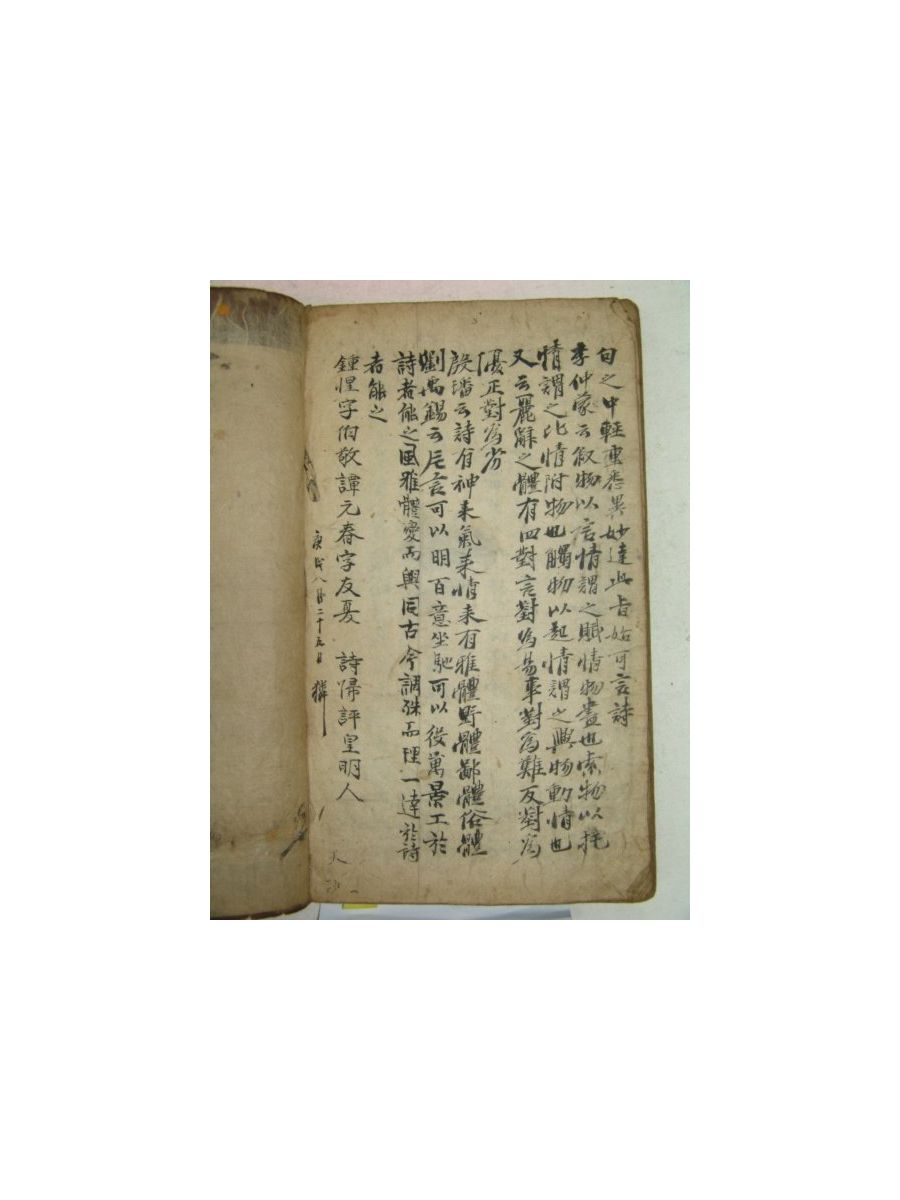 句之中輕重悉異妙達此旨始可言詩
李仲蒙云叙物以言情謂之賦情物盡也索物以托
情謂之比情附物也觸物以起情謂之興物動情也
又云麗辭之體有四對言對爲易事對爲難反對爲
優正對爲劣
殷璠云詩有神来氣来情来有雅體野體鄙體俗體
劉禹錫云片言可以明百意坐馳可以役萬景工於
詩者能之風雅體變而興同古今調殊而理一達於詩
者能之
鍾惺字伯敬譚元春字友夏 詩歸評皇明人
庚戌八月二十五日